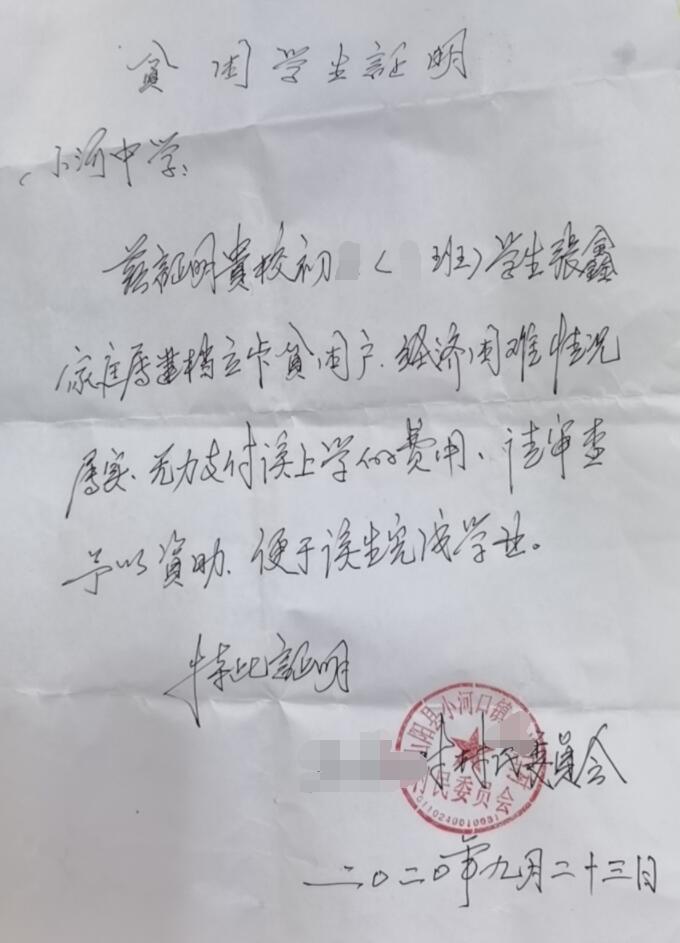 貧困学生証明
小河中学:
兹証明貴校初 ( 班)学生張鑫
家庭属建档立卡貧困户、经济困难情况
属实、无力支付该上学的费用、请审查
予以資助、便于该生完成学业。
特此証明
山阳县小河口镇
村民委员会
村村民委員会
二〇二〇年九月二十三日